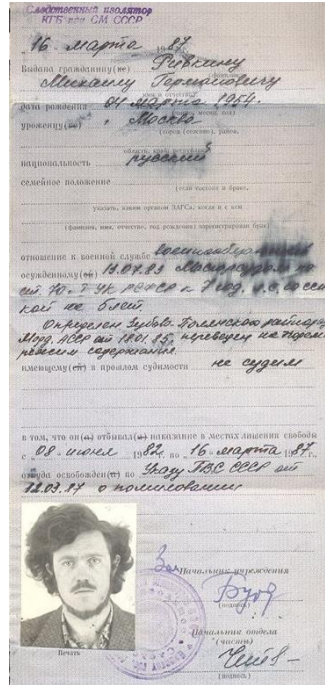 Следственный изолятор
КГБ при СМ СССР
"16" марта 1987.
Выдана гражданину(ке) Ривкину
фамилия,
Михаилу Германовичу
имя и отчество
дата рождения 04 марта 1954.
уроженцу(ке) г. Москва
(город (селение), район,
область, край, республика)
национальность русский
семейное положение
(если состоит в браке,
указать, каким органом ЗАГСа, когда и с кем
(фамилия, имя, отчество, год рождения) зарегистрирован брак)
отношение к военной службе военнообязанный
осужденному(ой) 13.07.83 Мосгорсудом по
ст. 70 УК РСФСР к 7 год. л.с. со ссыл
кой на 5 лет.
Определен. Зубово-Полянского райнарсуда
Морд. АССР от 18.01.85, переведен на тюремный
режим содержания.
имеющему(ей) в прошлом судимости не судим
в том, что он(а) отбывал(а) наказание в местах лишения свободы
с "08" июня 1982. по "16" марта 1987.
откуда освобожден(а) по Указу ПВС СССР от
12.03.87 о помиловании
Зам
Начальник учреждения
(подпись)
Начальник отдела
(части)
(подпись)
Печать